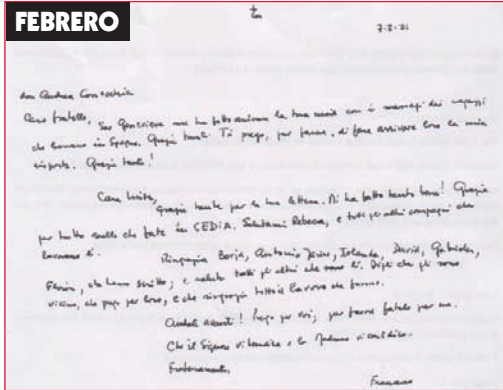 FEBRERO
7-2-21
don Andrea Conocchia
Caro fratello,
Suor Geneviève mi ha fatto arrivare la tua mail con i messaggi dei ragazzi
che lavorano in Spagna. Grazie tante. Ti prego, per favore, di fare arrivare loro la mia
risposta. Grazie tante!
Cara
grazie tante per la tua lettera. Mi ha fatto tanto bene! Grazie
per tutto quello che fate in CEDIA. Salutami Rebeca, e tutti gli altri compagni che
lavorano lì.
Ringrazia Borja, Antonio Javier, Iolanda, David, Gabriela,
che hanno scritto; e saluta tutti gli altri che sono lì. Digli che gli sono
vicino, che prego per loro, e che ringrazio tutto il lavoro che fanno.
Andate avanti! Prego per voi; per favore fatelo per me.
Che il Signore vi benedica e la Madonna vi custodisca.
Fraternamente,
Francesco